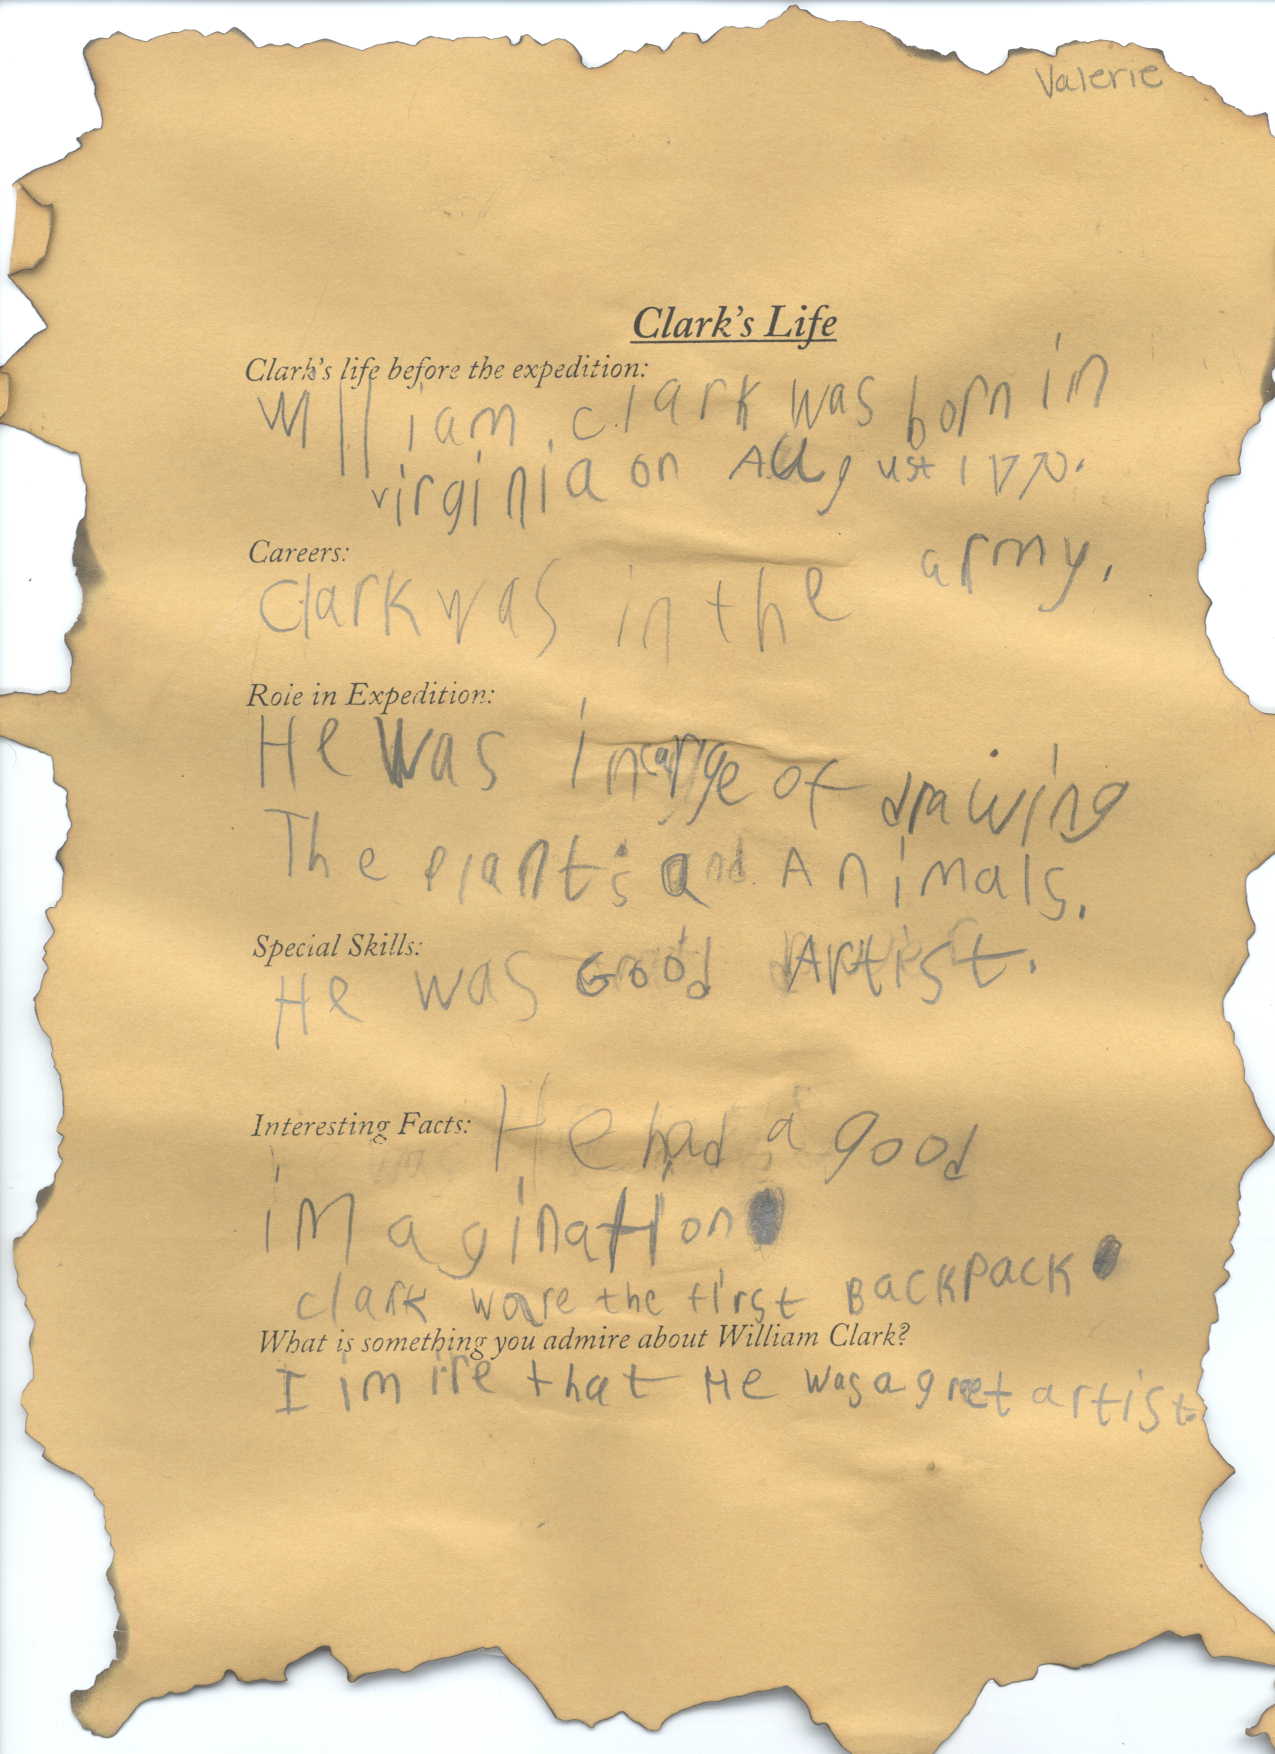 Valerie
Clark's Life
Clark's life before the expedition:
William Clark was born in
virginia on August 1770.
Careers:
Clark was in the army.
Role in Expedition:
He was incarge of drawing
The plants and Animals.
Special Skills:
He was Good Artist.
Interesting Facts: He had a good
imagination
Clark wore the first BACKPACK
What is something you admire about William Clark?
I imire that He was a greet artist.